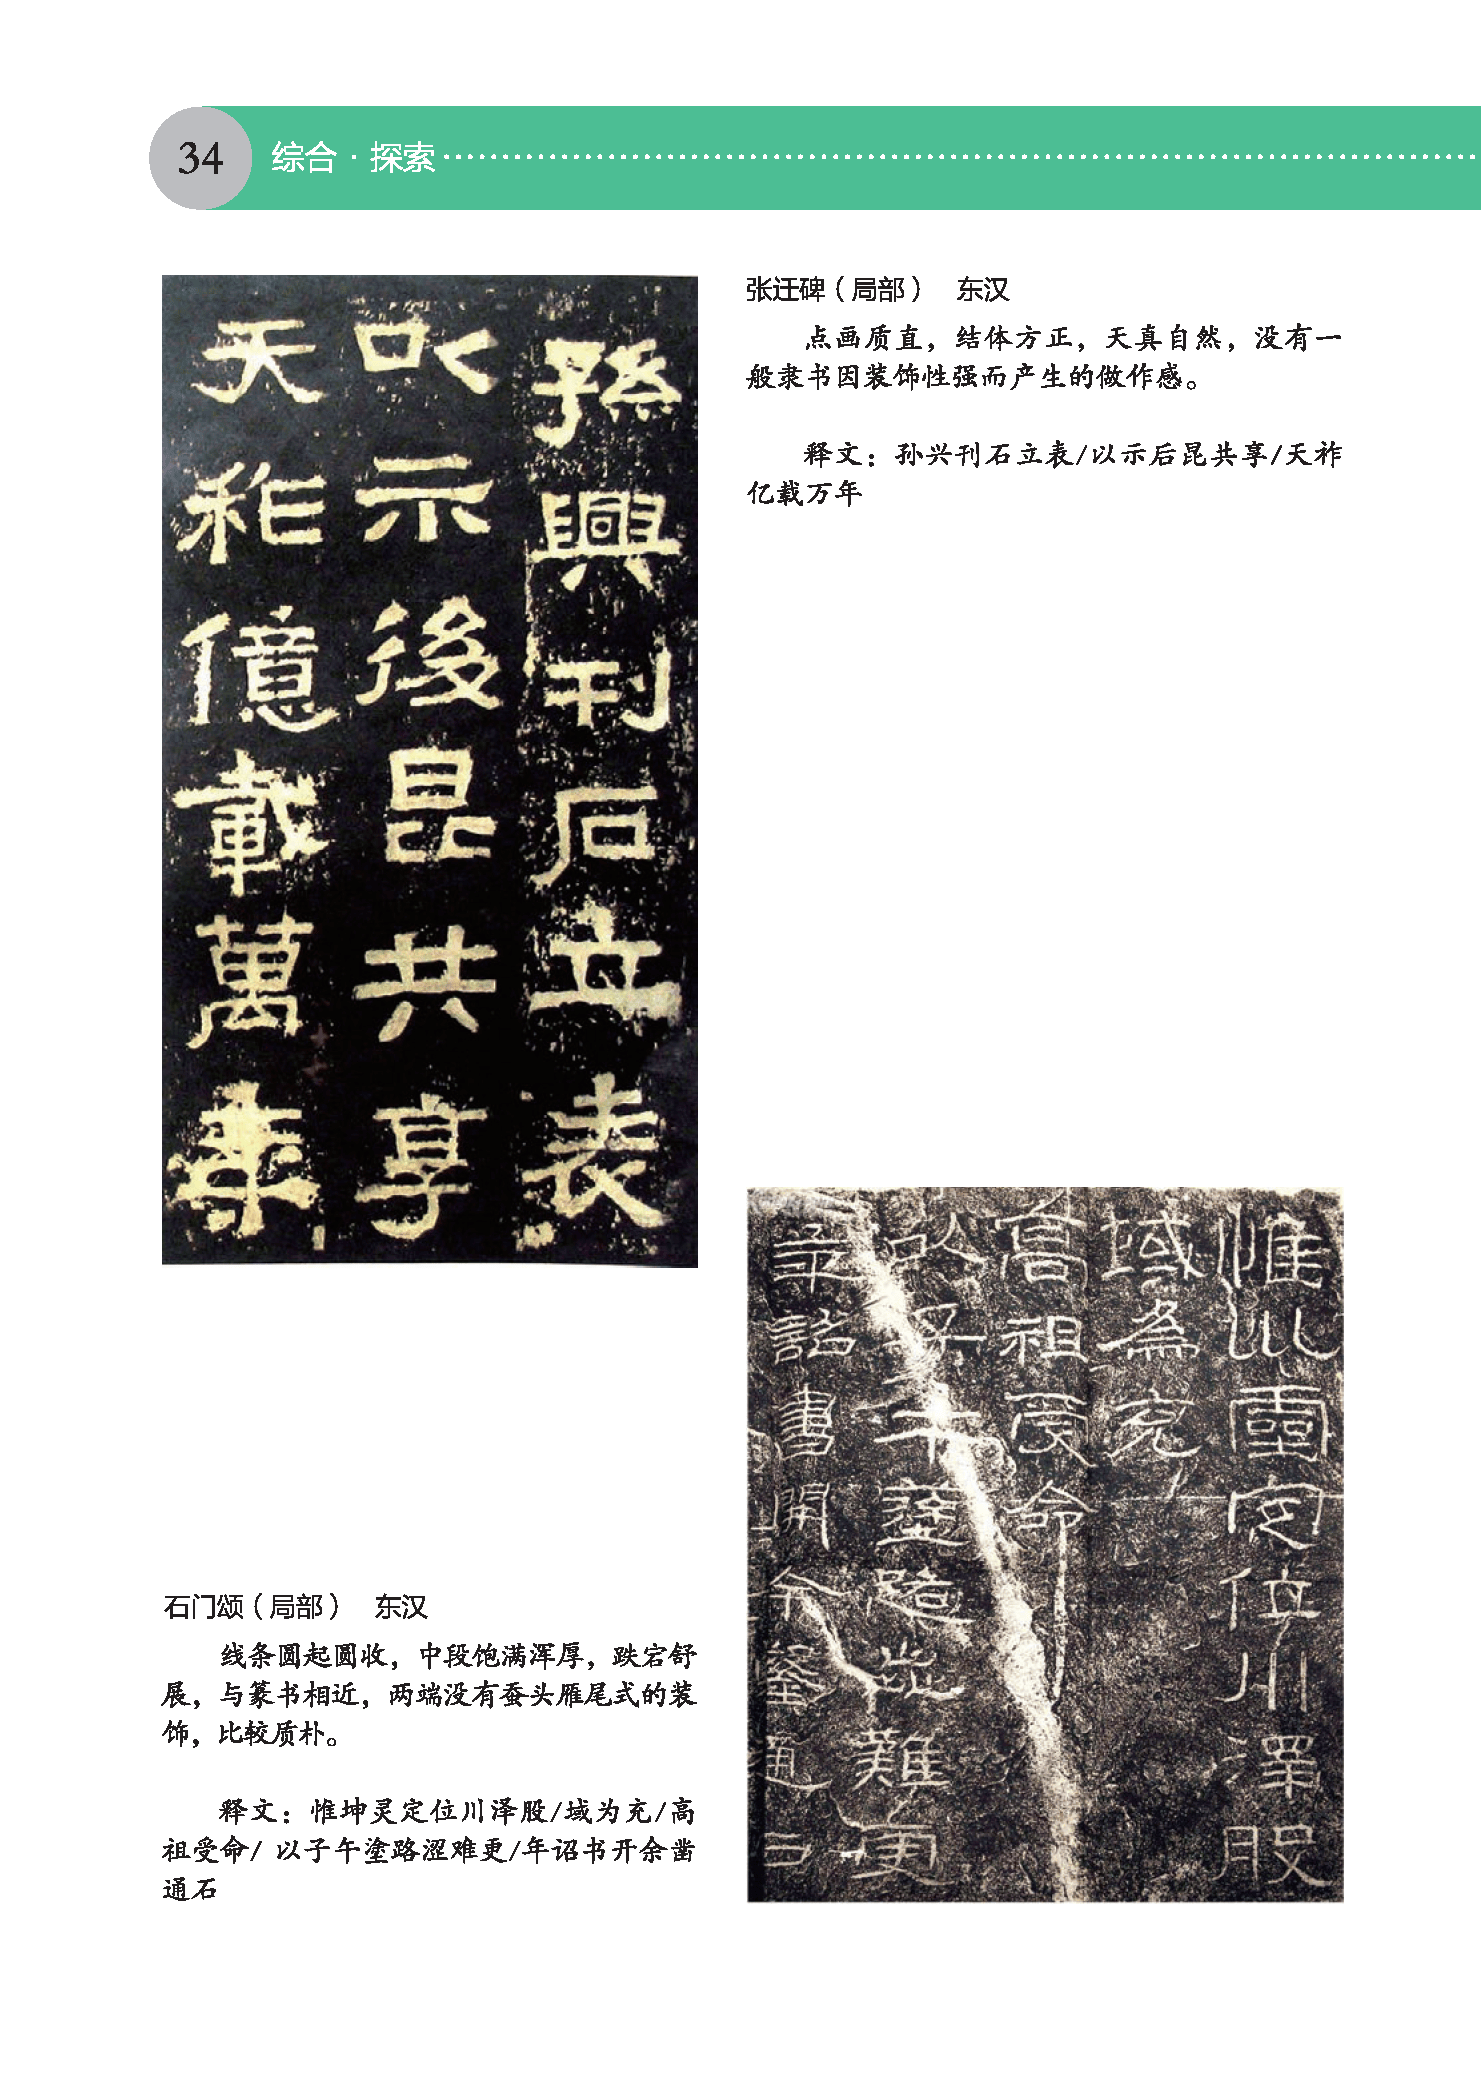 34
综合·探索
孫興刊石立表
以示後昆共享
天祚億載萬年
张迁碑（局部） 东汉
点画质直，结体方正，天真自然，没有一
般隶书因装饰性强而产生的做作感。
释文：孙兴刊石立表/以示后昆共享/天祚
亿载万年
石门颂（局部） 东汉
线条圆起圆收，中段饱满浑厚，跌宕舒
展，与篆书相近，两端没有蚕头雁尾式的装
饰，比较质朴。
释文：惟坤灵定位川泽股/域为充/高
祖受命/ 以子午塗路涩难更/年诏书开余凿
通石
惟巛靈定位川澤股
域為充
高祖受命
以子午塗路歰難更
年詔書開余鑿通石